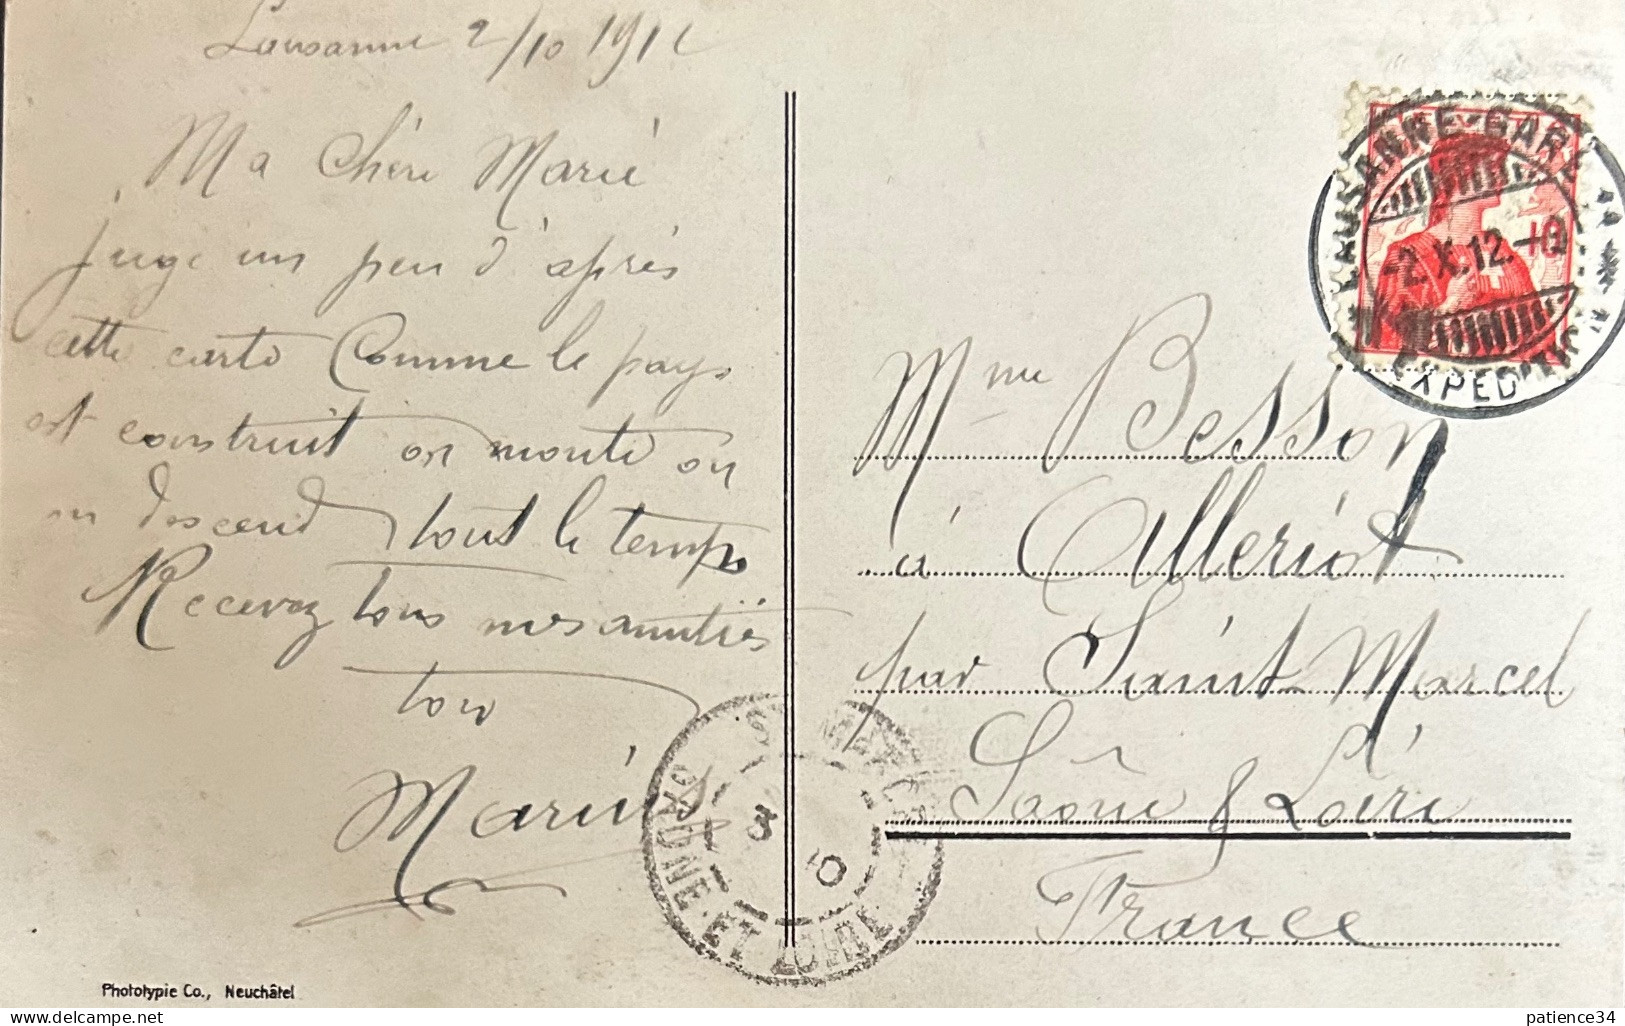 Lausanne 2/10 1912
Ma Chère Marie
juge un peu d'après
cette carte Comme le pays
est construit on monte ou
on descend tout le temps
Recevez tous mes amitiés
ton
Marius
Mme Besson
à Alleriot
par Saint Marcel
Saône & Loire
France
LAUSANNE-GARE
-2.X.12.-10
EXPEDITION
3
10
SAONE-ET-LOIRE
Phototypie Co., Neuchâtel
delcampe.net
patience34